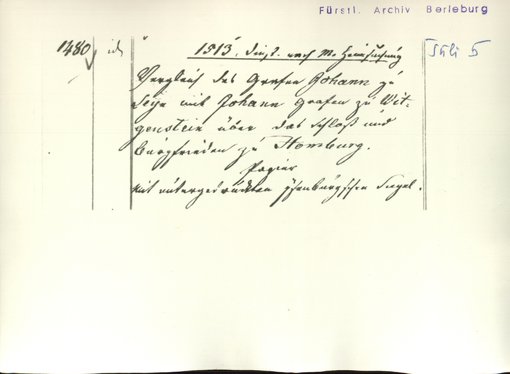 Fürstl. Archiv Berleburg
1480 id. 1513. Dinst. nach M. Heimsuchung Juli 5
Vergleich des Grafen Johann zu
Seyn mit Johann Grafen zu Wit-
genstein über das Schloß und
Burgfrieden zu Homburg.
Papier
mit untergedrückten ysenburgschen Siegel.